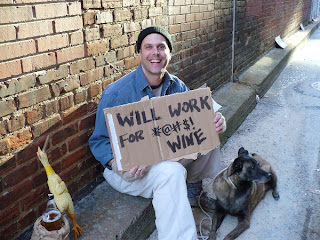 WILL WORK
FOR #@#$!
WINE